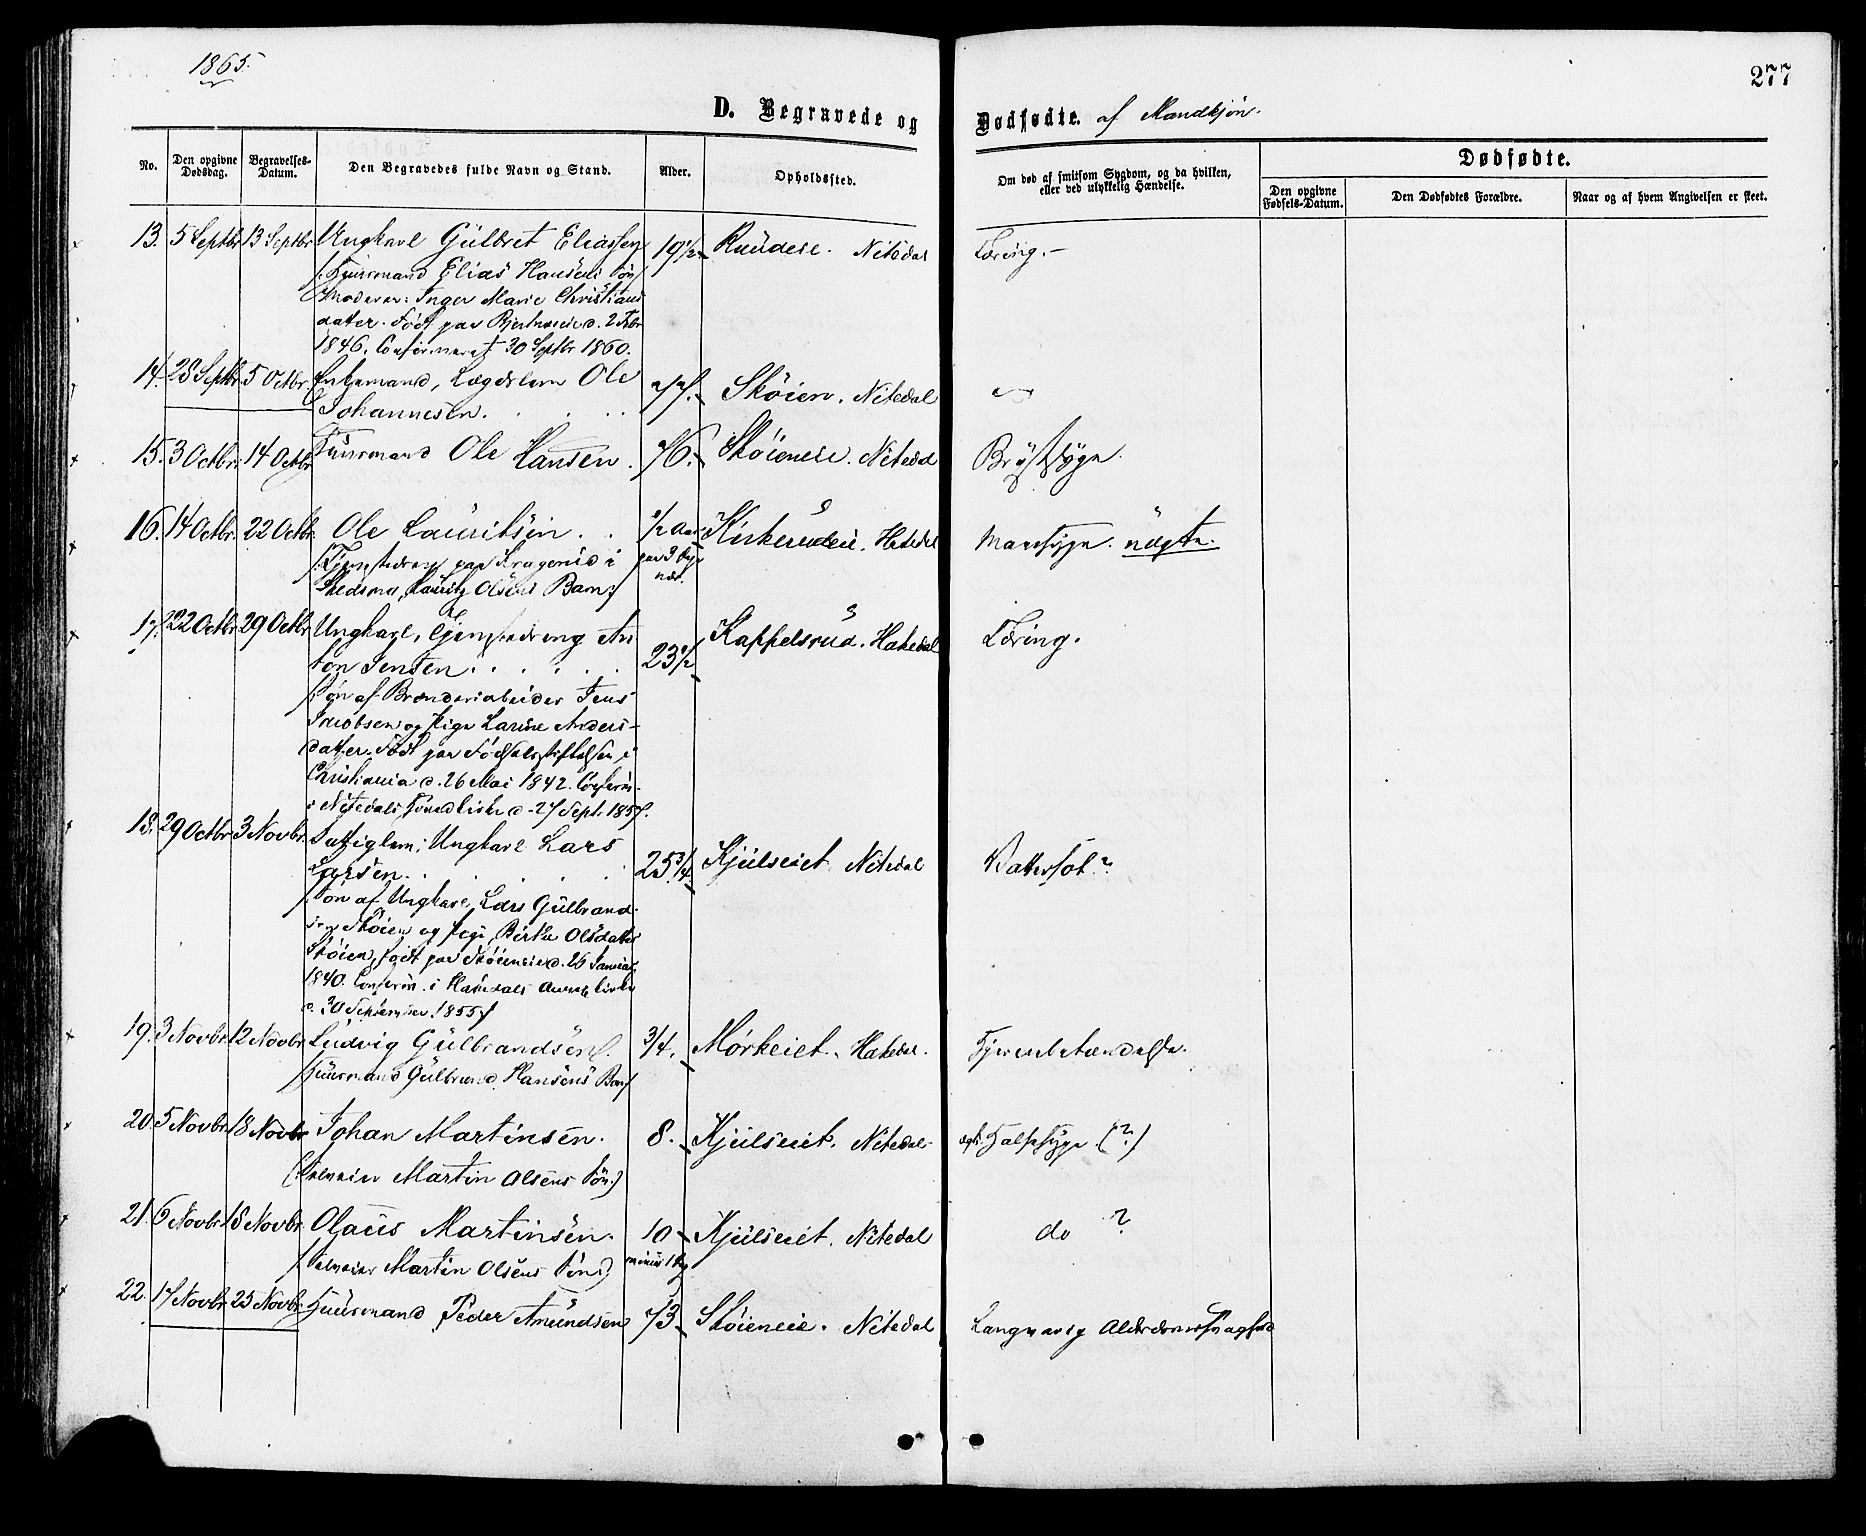 1865.
277
D. Begravede og Dødfødte. af Mandkjøn.
No.
Den opgivne Dødsdag.
Begravelses-Datum.
Den Begravedes fulde Navn og Stand.
Alder.
Opholdssted.
Om død af smitsom Sygdom, og da hvilken, eller ved ulykkelig Hændelse.
Dødfødte.
Den opgivne Fødsels-Datum.
Den Dødfødtes Forældre.
Naar og af hvem Angivelsen er skeet.
13. 5 Septbr 13 Septbr Ungkarl Gulbret Eliassen 19 1/2 Ruudeie. Nitedal Tæring.
/: Huusmand Elias Hansens Søn
Moderen: Inger Marie Christians
datter. Født paa d. 2 Febr
1846. Confirmeret 30 Septbr 1860.
14. 28 Septbr 5 Octbr. Enkemand, Lægdslem Ole 77. Skøien. Nitedal
Johannesen.
15. 3 Octbr. 14 Octbr Huusmand Ole Hansen. 76. Skøieneie. Nitedal Brystsyge.
16. 14 Octbr. 22 Octbr. Ole Lauritsen. 1/2 Aar Kirkerudeie. Hakedal Mavesyge. nægte.
/: Tjenstedreng paa Kragerud i paa 3 Dage nær.
Skedsmo, Lauritz Olsens Barn :/
17. 22 Octbr 29 Octbr Ungkarl, Tjenstedreng An 23 1/2 Kappelsrud. Hakedal Tæring.
ton Jensen.
/: Søn af Brænderiarbeider Jens
Jacobsen og Pige Larine Anders-
datter. Født paa Fødselsstiftelsen i
Christiania d. 26 Mai 1842. Confirm.
i Nitedals d. 27 Sept. 1857.
18. 29 Octbr 3 Novbr. Fattiglem, Ungkarl Lars 25 3/4 Kjulseiet Nitedal Vattersot?
Larsen.
/: Søn af Ungkarl Lars Gulbrand-
sen Skøien og Pige Birthe Olsdatter
Skøien, født paa Skøieneie d. 26 Januar
1840. Confirm. i Hakedals Annexkirke
d. 30 September 1855 :/
19. 3 Novbr. 12 Novbr. Ludvig Gulbrandsen. 3/4. Mørkeiet. Hakedal. Hjernebetændelse.
/: Huusmand Gulbrand Hansens Barn :/
20. 5 Novbr. 18 Novbr Johan Martinsen. 8. Kjulseiet. Nitedal Halssyge (?)
(: Selveier Martin Olsens Søn :)
21. 6 Novbr. 18 Novbr. Olaus Martinsen. 10 Kjulseiet. Nitedal do ?
/: Selveier Martin Olsens Søn :) minus 1 Dag
22. 17 Novbr. 25 Novbr. Huusmand Peder Amundsen 73 Skøieneie. Nitedal Langvarig Alderdomssvaghed